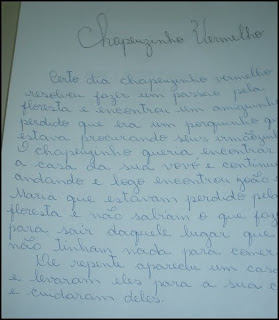 Chapeuzinho Vermelho
Certo dia chapeuzinho vermelho
resolveu fazer um passeio pela
floresta e encontrou um amiguinho
perdido que era um porquinho q
estava procurando seus irmãozin
O chapeuzinho queria encontrar
a casa da sua vovó e continu
andando e logo encontrou joão
Maria que estavam perdido pela
floresta e não sabiam o que faz
para sair daquele lugar que
não tinham nada para comer
De repente apareceu um cas
e levaram eles para a sua c
e cuidaram deles.